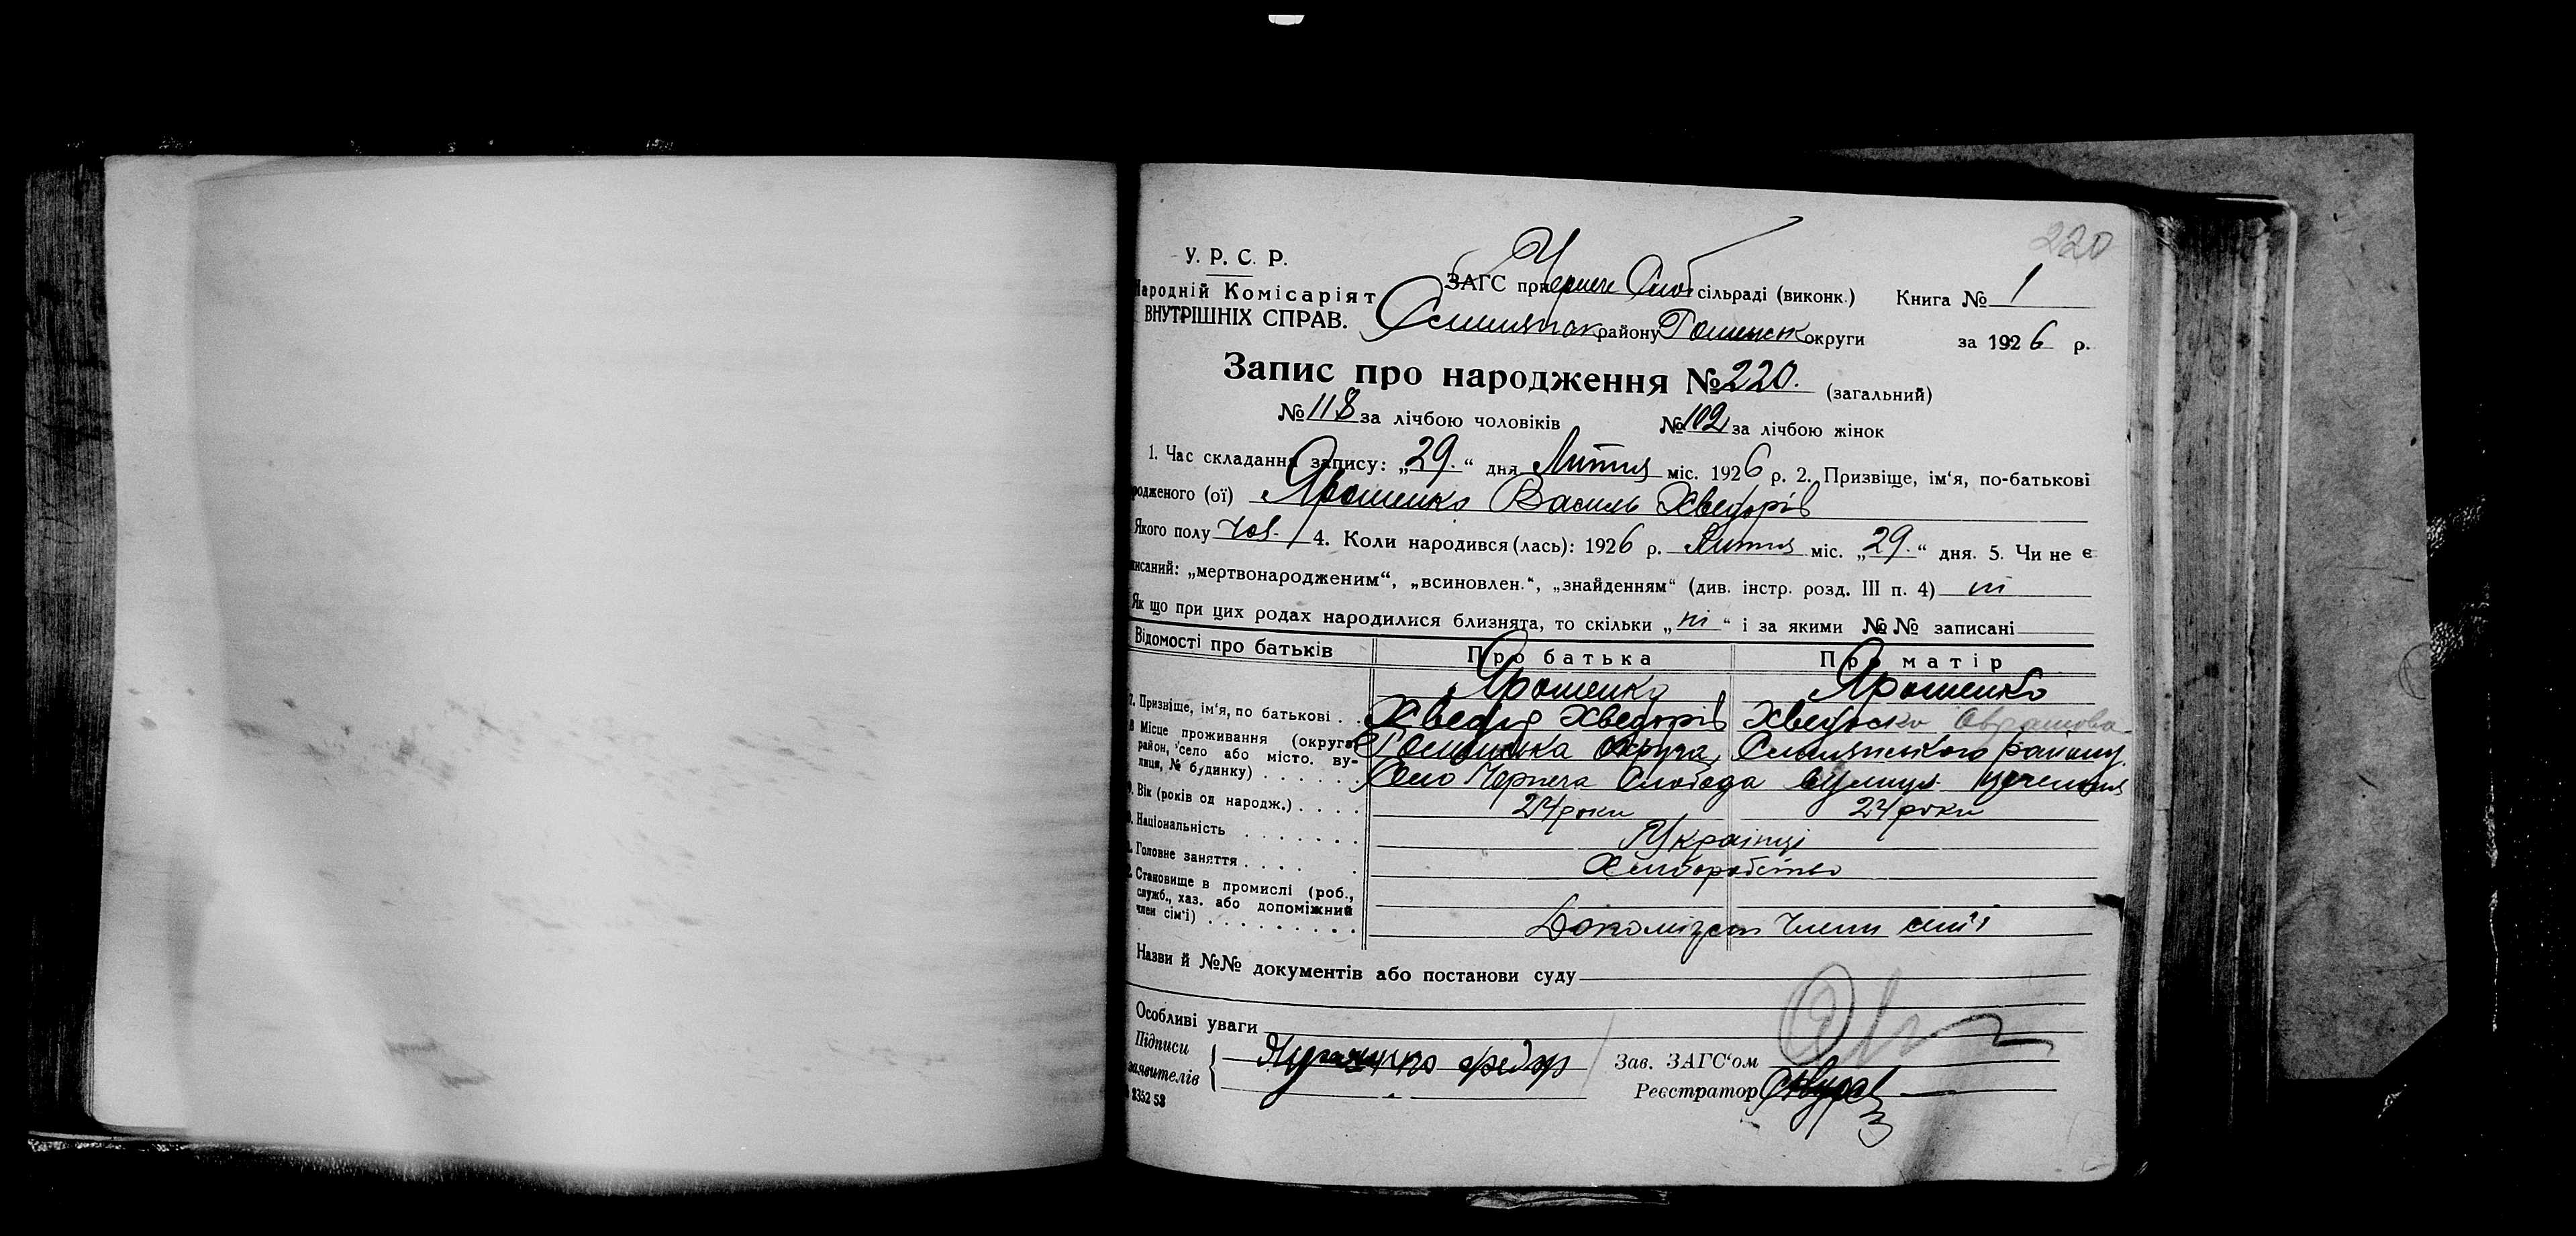 220
У. Р. С. Р.
Народній Комісаріят
ВНУТРІШНІХ СПРАВ.
ЗАГС при Чернече Слоб. сільраді (виконк.) Книга № 1
Смилянск району Роменськ округи за 1926 р.
Запис про народження № 220. (загальний)
№ 118 за лічбою чоловіків № 102 за лічбою жінок
1. Час складання запису: „29.“ дня Липня міс. 1926 р. 2. Призвіще, ім‘я, по-батькові
родженого (ої) Ярошенко Василь Хведорів
Якого полу чол. 4. Коли народився (лась): 1926 р. Липня міс. „29.“ дня. 5. Чи не є
писаний: „мертвонародженим“, „всиновлен.“, „знайденням“ (див. інстр. розд. III п. 4) ні
Як що при цих родах народилися близнята, то скільки „ні“ і за якими №№ записані
Відомості про батьків Про батька Про матір
Ярошенко Ярошенко
7. Призвіще, ім‘я, по батькові . . Хведір Хведорів Хведоска
8 Місце проживання (округа, район, село або місто, вулиця, № будинку) . . . . . .
Роменська округа, Смілянського району,
Село Чернеча Слобода вулиця
9. Вік (років од народж.) . . . . 24 роки 24 роки
10. Національність . . . . . . . Українці
11. Головне заняття . . . . . Хліборобство
12. Становище в промислі (роб.,
служб., хаз. або допоміжний
член сім‘ї) . . . . . . . . . Допоміжні члени сім'ї
Назви й №№ документів або постанови суду
Особливі уваги
Підписи
заявителів
Зав. ЗАГС‘ом
Реєстратор
8352 53